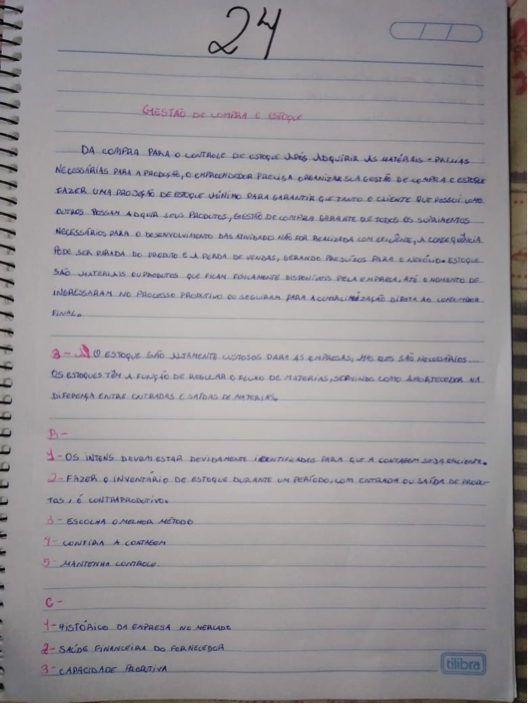 24
GESTÃO DE COMPRA E ESTOQUE
DA COMPRA PARA O CONTROLE DE ESTOQUE APÓS ADQUIRIR AS MATÉRIAS-PRIMAS
NECESSÁRIAS PARA A PRODUÇÃO, O EMPREENDEDOR PRECISA ORGANIZAR SUA GESTÃO DE COMPRA E ESTOQUE
FAZER UMA PROJEÇÃO DE ESTOQUE MÍNIMO PARA GARANTIR QUE TANTO O CLIENTE QUE POSSUI COMO
OUTROS POSSAM ADQUIR SEUS PRODUTOS, GESTÃO DE COMPRA GARANTE QUE TODOS OS SUPRIMENTOS
NECESSÁRIOS PARA O DESENVOLVIMENTO DAS ATIVIDADO NÃO FOR REALIZADA COM EFICIÊNTE, A CONSEQUÊNCIA
PODE SER PARADA DO PRODUTO E A PERDA DE VENDAS, GERANDO PREJUÍZOS PARA O NEGÓCIO. ESTOQUE
SÃO MATERIAIS OU PRODUTOS QUE FICAM DISPONÍVEIS PELA EMPRESA, ATÉ O MOMENTO DE
INGRESSARAM NO PROCESSO PRODUTIVO OU SEGUIRAM PARA A DIRETA AO CONSUMIDOR
FINAL.
3- O ESTOQUE SÃO ALTAMENTE CUSTOSOS PARA AS EMPRESAS, MAS ELES SÃO NECESSÁRIOS
OS ESTOQUES TÊM A FUNÇÃO DE REGULAR O FLUXO DE MATERIAS, SERVINDO COMO AMORTECEDOR NA
DIFERENÇA ENTRE ENTRADAS E SAÍDAS DE MATERIAS.
B-
1- OS INTENS DEVEM ESTAR DEVIDAMENTE IDENTIFICADOS PARA QUE A CONTAGEM SEJA EFICIENTE.
2- FAZER O INVENTÁRIO DE ESTOQUE DURANTE UM PERÍODO, COM ENTRADA OU SAÍDA DE PRODU-
TOS, É CONTRAPRODUTIVO.
3- ESCOLHA O MELHOR MÉTODO
4- CONFIRA A CONTAGEM
5- MANTENHA CONTROLE.
C-
1- HISTÓRICO DA EMPRESA NO MERCADO
2- SAÚDE FINANCEIRA DO FORNECEDOR
3- CAPACIDADE PRODUTIVA
tilibra